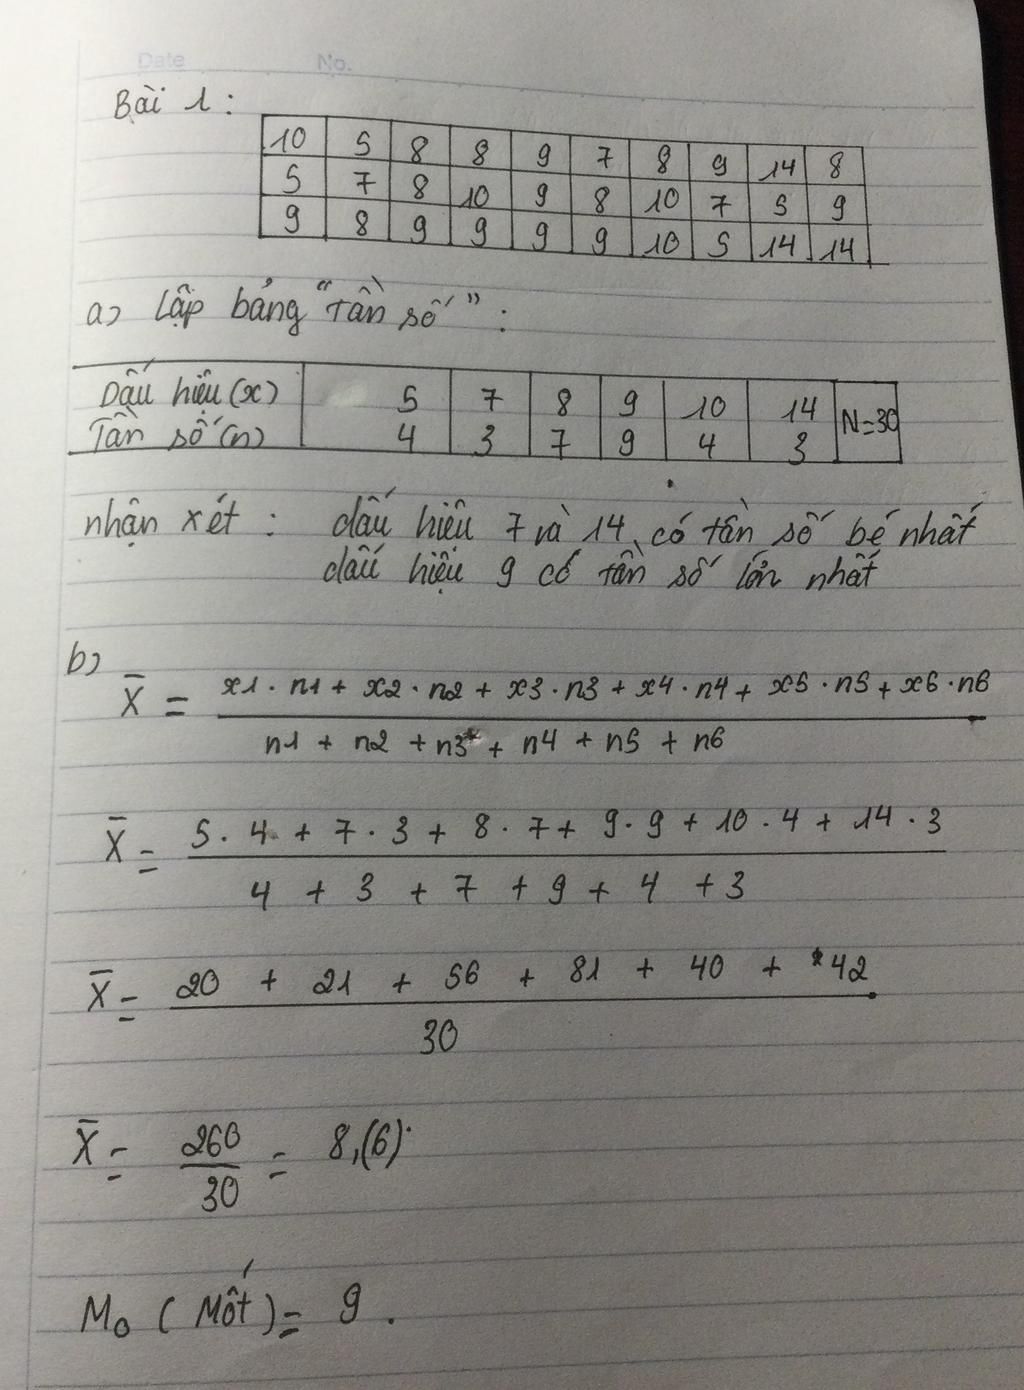 Date No.
Bài 1:
10 5 8 8 9 7 8 9 14 8
5 7 8 10 9 8 10 7 5 9
9 8 9 9 9 9 10 5 14 14
a) Lập bảng "Tần số":
Dấu hiệu (x) 5 7 8 9 10 14 N=30
Tần số (n) 4 3 7 9 4 3
nhận xét: dấu hiệu 7 và 14 có tần số bé nhất
dấu hiệu 9 có tần số lớn nhất
b)
X̄ = x1 · n1 + x2 · n2 + x3 · n3 + x4 · n4 + x5 · n5 + x6 · n6
n1 + n2 + n3 + n4 + n5 + n6
X̄ = 5 · 4 + 7 · 3 + 8 · 7 + 9 · 9 + 10 · 4 + 14 · 3
4 + 3 + 7 + 9 + 4 + 3
X̄ = 20 + 21 + 56 + 81 + 40 + 42
30
X̄ = 260 = 8,(6)
30
M₀ (Mốt) = 9.